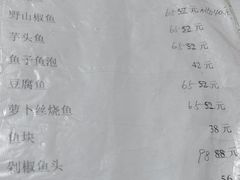 野山椒鱼 65 52元
芋头鱼 65 52元
鱼子鱼泡 42元
豆腐鱼 65 52元
萝卜丝烧鱼 65 52元
鱼块 38元
剁椒鱼头 98 88元
56